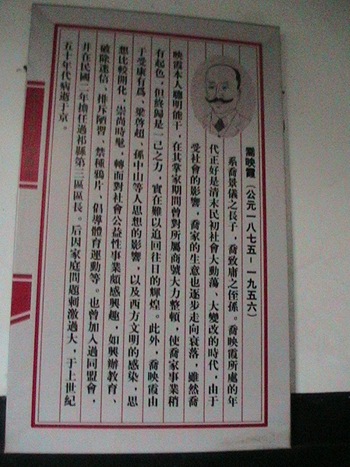 喬映霞（公元一八七五－一九五六）
系喬景儀之長子，喬致庸之侄孫。喬映霞所處的年
代正好是清末民初社會大動蕩、大變改的時代，由于
受社會的影響，喬家的生意也逐步走向衰落，雖然喬
映霞本人聰明能干，在其掌家期間曾對所屬商號大力整頓，使喬家事業稍
有起色，但終歸是一己之力，實在難以追回往日的輝煌。此外，喬映霞由
于受康有爲、梁啓超、孫中山等人思想的影響，以及西方文明的感染，思
想比較開化，崇尚時髦，轉而對社會公益性事業頗感興趣，如興辦教育、
破除迷信、排斥陋習、禁種鴉片、倡導體育運動等。也曾加入過同盟會，
并在民國二年擔任過祁縣第三區區長。后因家庭問題刺激過大，于上世紀
五十年代病逝于京。